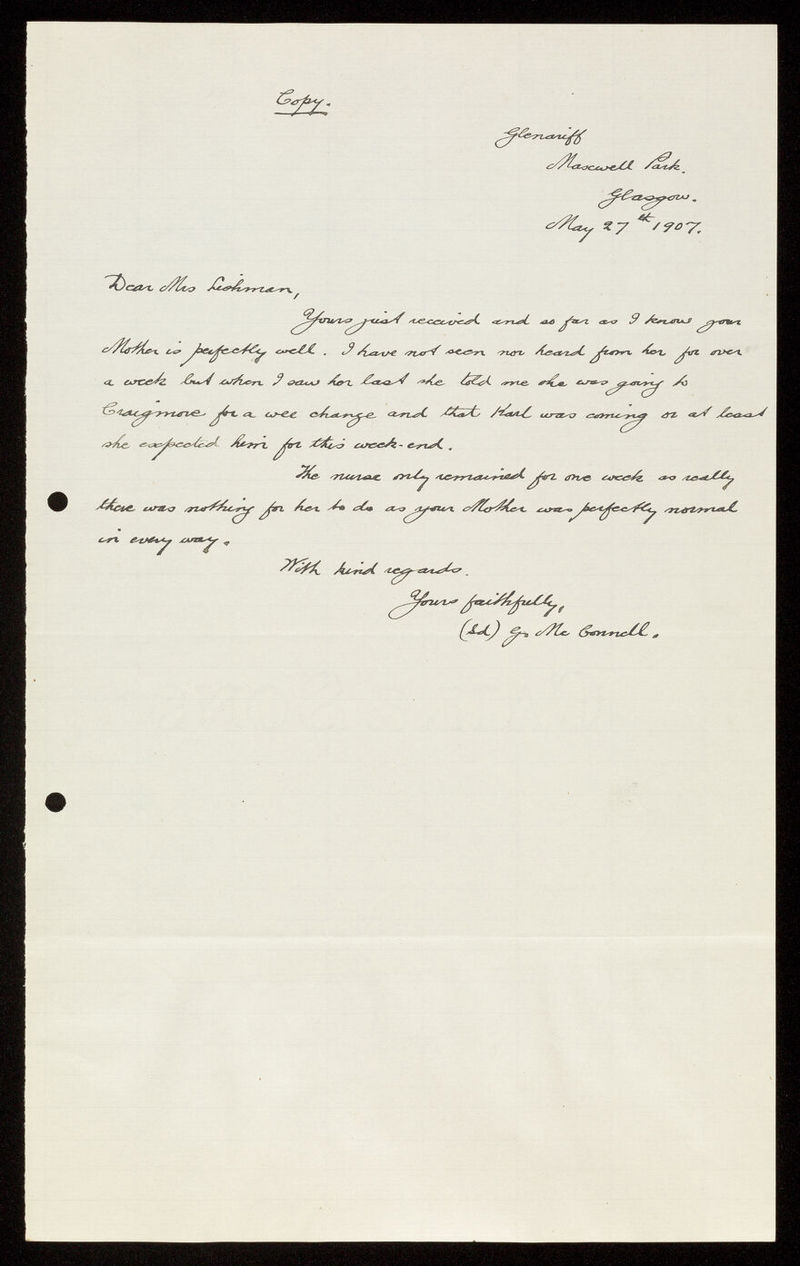 Copy.
Glenariff
Maxwell Park.
Glasgow.
May 27th 1907.
Dear Mrs Lishman,
Yours just received and so far as I know your
Mother is perfectly well. I have not seen nor heard from her for over
a week but when I saw her last she told me she was going to
Craigmore for a wee change and that Karl was coming or at least
she expected him for this week-end.
The nurse only remained for one week as really
there was nothing for her to do as your Mother was perfectly normal
in every way.
With kind regards.
Yours faithfully,
(Sd) G. Mc Connell.